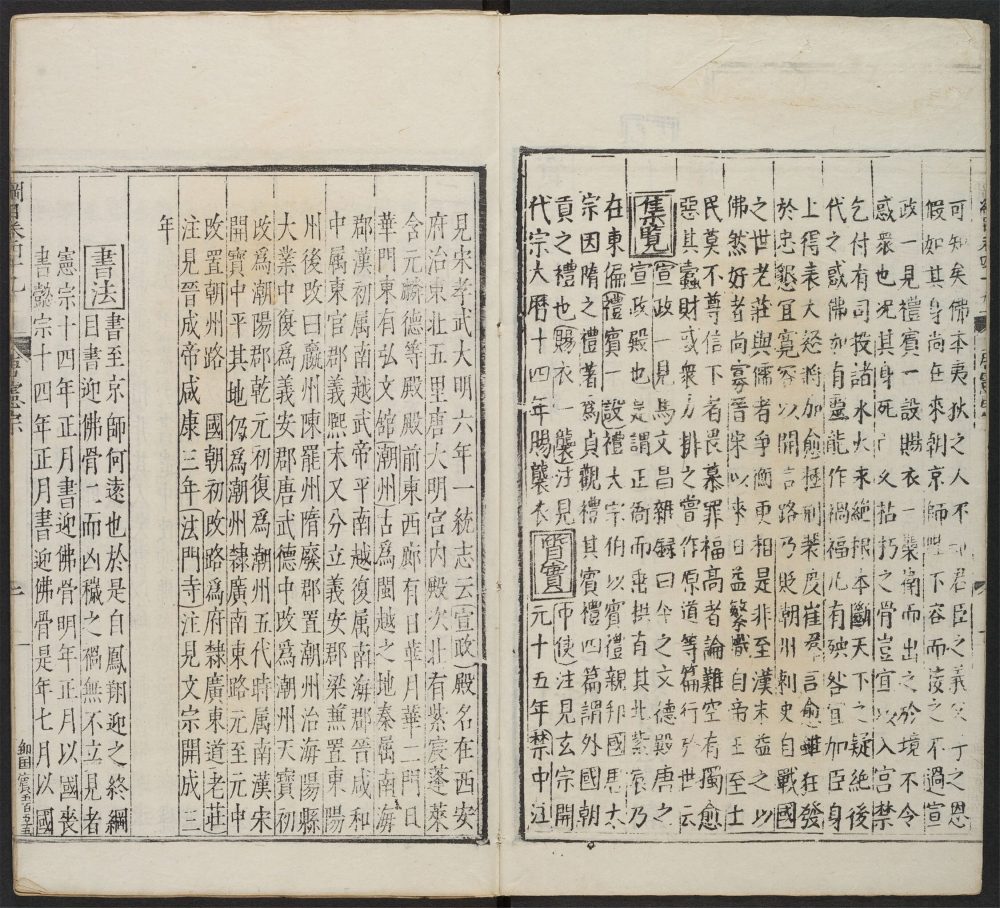 可知矣佛本夷狄之人不知君臣之義父子之恩
假如其身尚在來朝京師陛下容而接之不過宣
政一見禮賓一設賜衣一襲衛而出之於境不令
惑衆也况其身死已久枯朽之骨豈宜以入宮禁
乞付有司投諸水火永絶根本斷天下之疑絶後
代之惑佛如有靈能作禍福凡有殃咎宜加臣身
上得表大怒將加愈極刑裴度崔羣言愈雖狂發
於忠懇宜寛容以開言路乃貶潮州刺史自戰國
之世老莊與儒者爭衡更相是非至漢末益之以
佛然好者尚寡晉宋以來日益繁熾自帝王至士
民莫不尊信下者畏慕罪福高者論難空有獨愈
惡其蠧財惑衆力排之嘗作原道等篇行於世云
集覽宣政一見馬文昌雜録曰今之文德殿唐之
宣政殿也是謂正衙而垂拱有其北紫宸乃
在東偏禮賓一設禮大宗伯以賓禮親邦國馬太
宗因隋之禮著爲貞觀禮其賓禮四篇謂外國朝
貢之禮也賜衣一襲注見
代宗大曆十四年賜襲衣質實中使注見玄宗開
元十五年禁中注
見宋孝武大明六年一統志云宣政殿名在西安
府治東北五里唐大明宮内殿次北有紫宸蓬萊
含元麟德等殿殿前東西廊有日華月華二門日
華門東有弘文館潮州古爲閩越之地秦属南海
郡漢初属南越武帝平南越復属南海郡晉咸和
中属東官郡義熈末又分立義安郡梁兼置東陽
州後改曰瀛州陳罷州隋廢郡置潮州治海陽縣
大業中復爲義安郡唐武德中改爲潮州天寶初
改爲潮陽郡乾元初復爲潮州五代時属南漢宋
開寶中平其地仍爲潮州隷廣南東路元至元中
改置潮州路國朝初改路爲府隷廣東道老莊
注見晉成帝咸康三年法門寺注見文宗開成三
年
書法書至京師何遠也於是自鳳翔迎之終綱
目書迎佛骨二而凶穢之禍無不立見者
憲宗十四年正月書迎佛骨明年正月以國喪
書懿宗十四年正月書迎佛骨是年七月以國
綱目卷四十九
唐憲宗